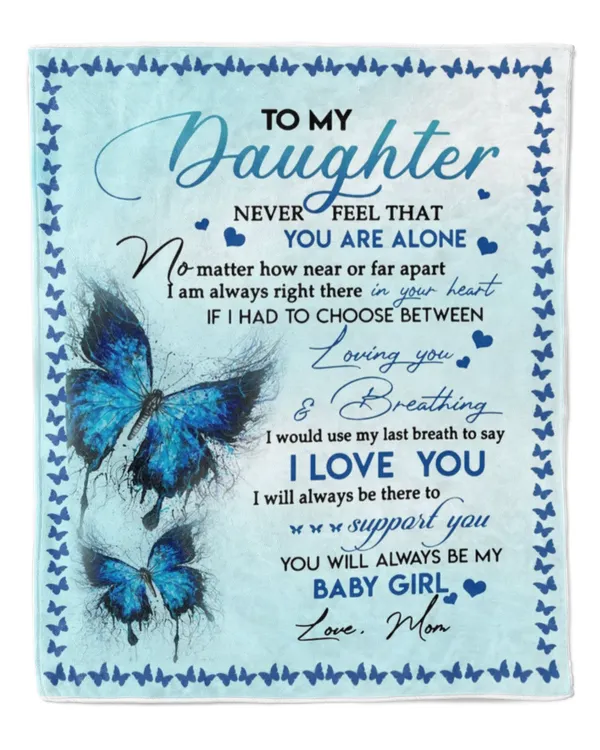 TO MY
Daughter
NEVER FEEL THAT
YOU ARE ALONE
No matter how near or far apart
I am always right there in your heart
IF I HAD TO CHOOSE BETWEEN
Loving you
& Breathing
I would use my last breath to say
I LOVE YOU
I will always be there to
support you
YOU WILL ALWAYS BE MY
BABY GIRL
Love, Mom